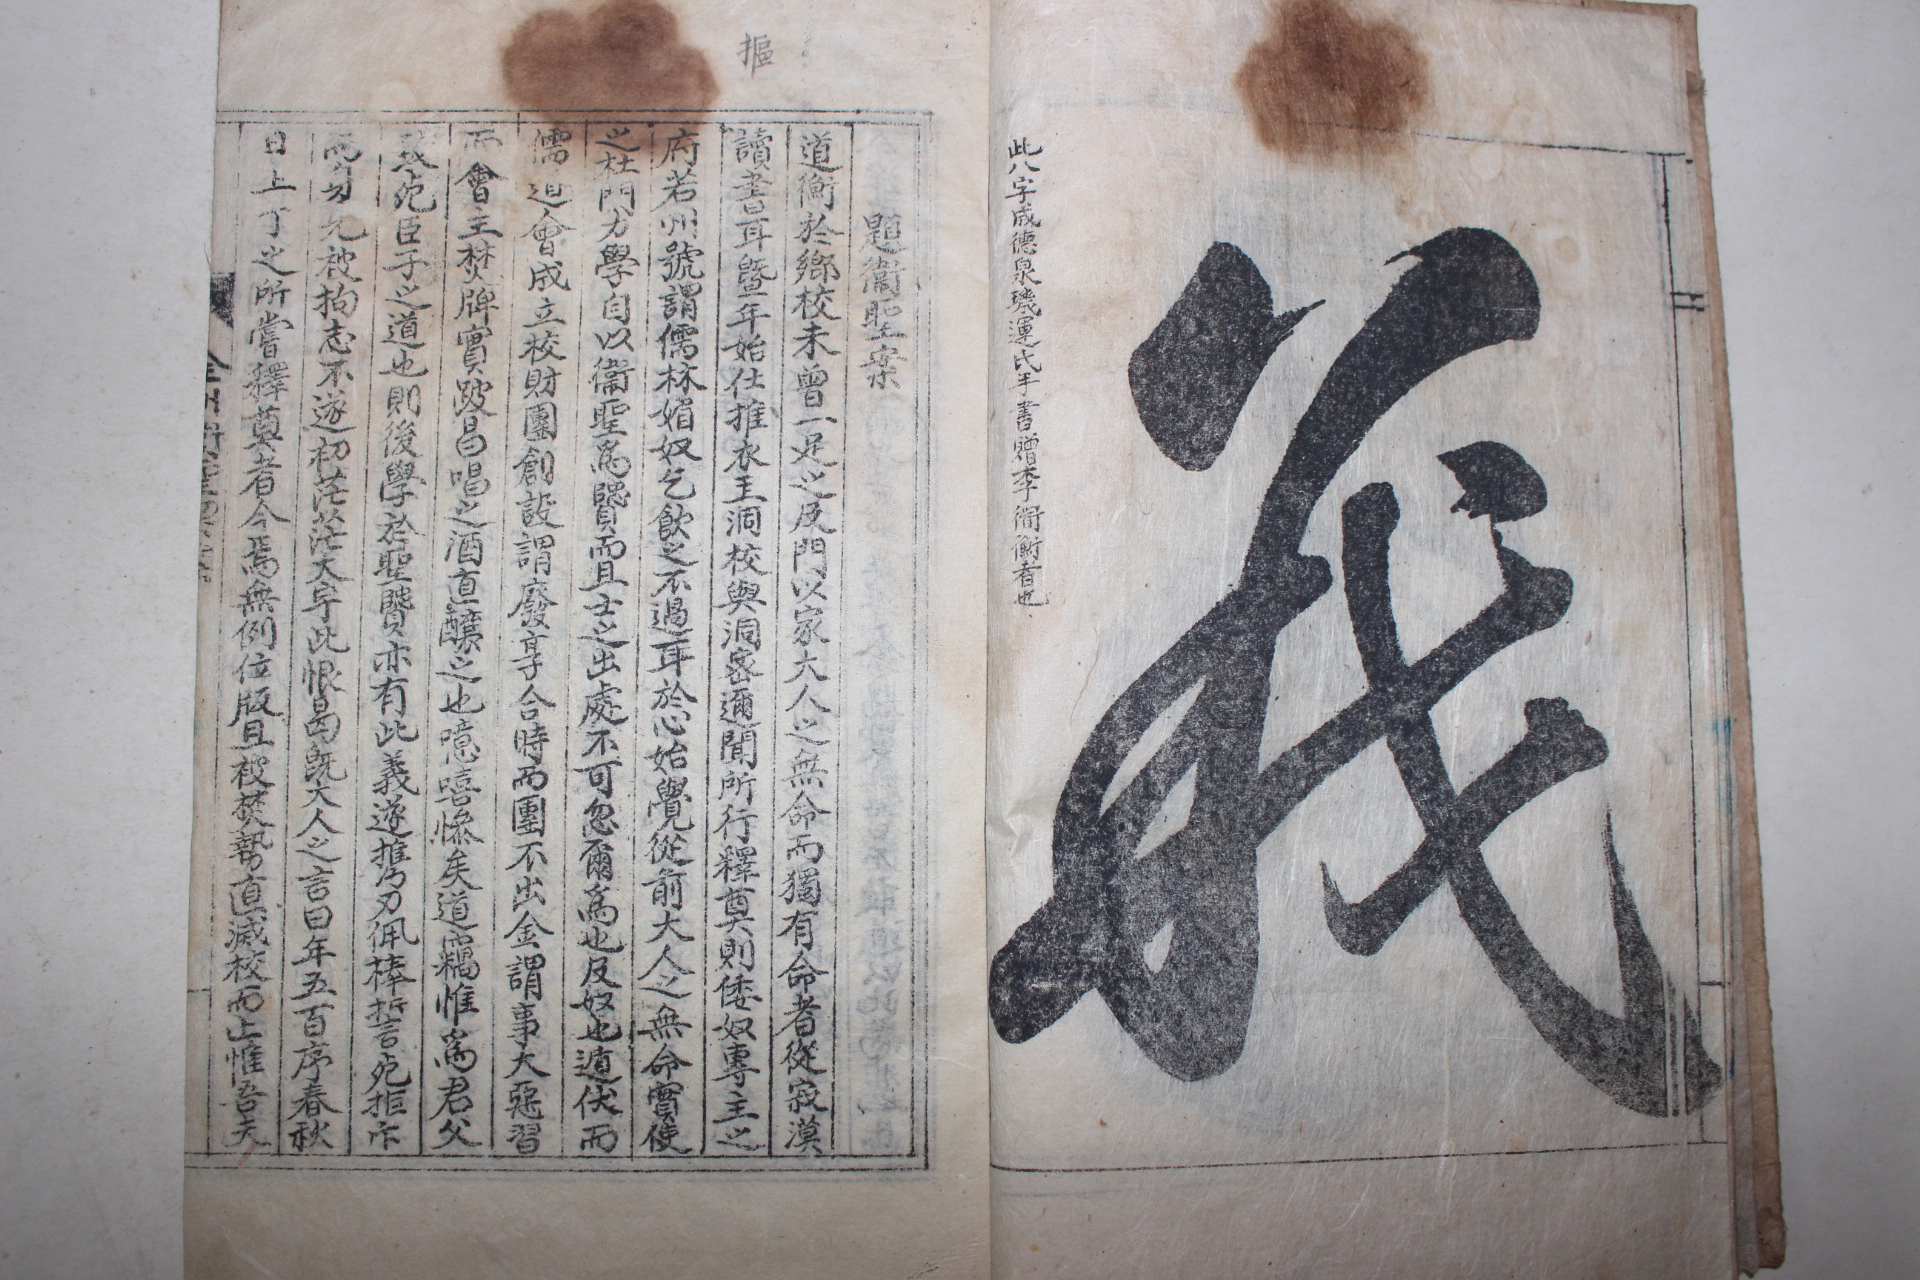 義
此八字成德泉璣運氏手書贈李衛衡者也
摳
題衛聖案
道衡於鄕校未曾一足之及門以家大人之無命而獨有命者從寂漠
讀書耳曁年始仕推衣王洞校與洞密邇聞所行釋奠則倭奴專主之
府若州號謂儒林娼奴乞飮之不過耳於心始覺從前大人之無命實使
之杜門力學自以衛聖爲賢而且士之出處不可忽爾爲也及奴也遁伏而
儒道會成立校財團創設謂廢享合時而團不出金謂事大惡習
而會主焚牌實跛昌唱之酒直釀之也噫嘻慘矣道霱惟爲君父
死臣子之道也則後學於聖賢亦有此義遂推乃刃佩棒誓死拒
而勿允被拘志不遂初茫茫大宇此恨曷旣大人之言曰年五百序春秋
日上丁之所嘗釋奠者今焉無例位版且被焚勢直滅校而止惟吾夫